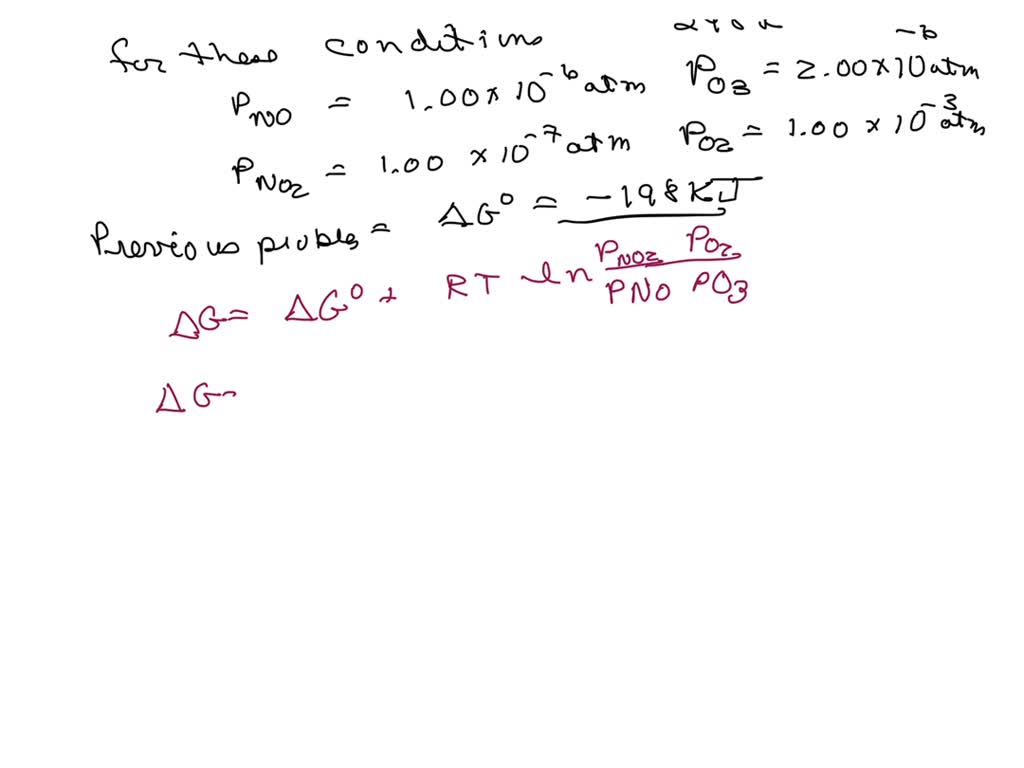 for these conditions
P_NO = 1.00 × 10^-6 atm P_O3 = 2.00 × 10^-6 atm
P_NO2 = 1.00 × 10^-7 atm P_O2 = 1.00 × 10^-3 atm
Previous proble = ΔG° = -198 KJ
ΔG = ΔG° + RT ln P_NO2 P_O2 / P_NO P_O3
ΔG =